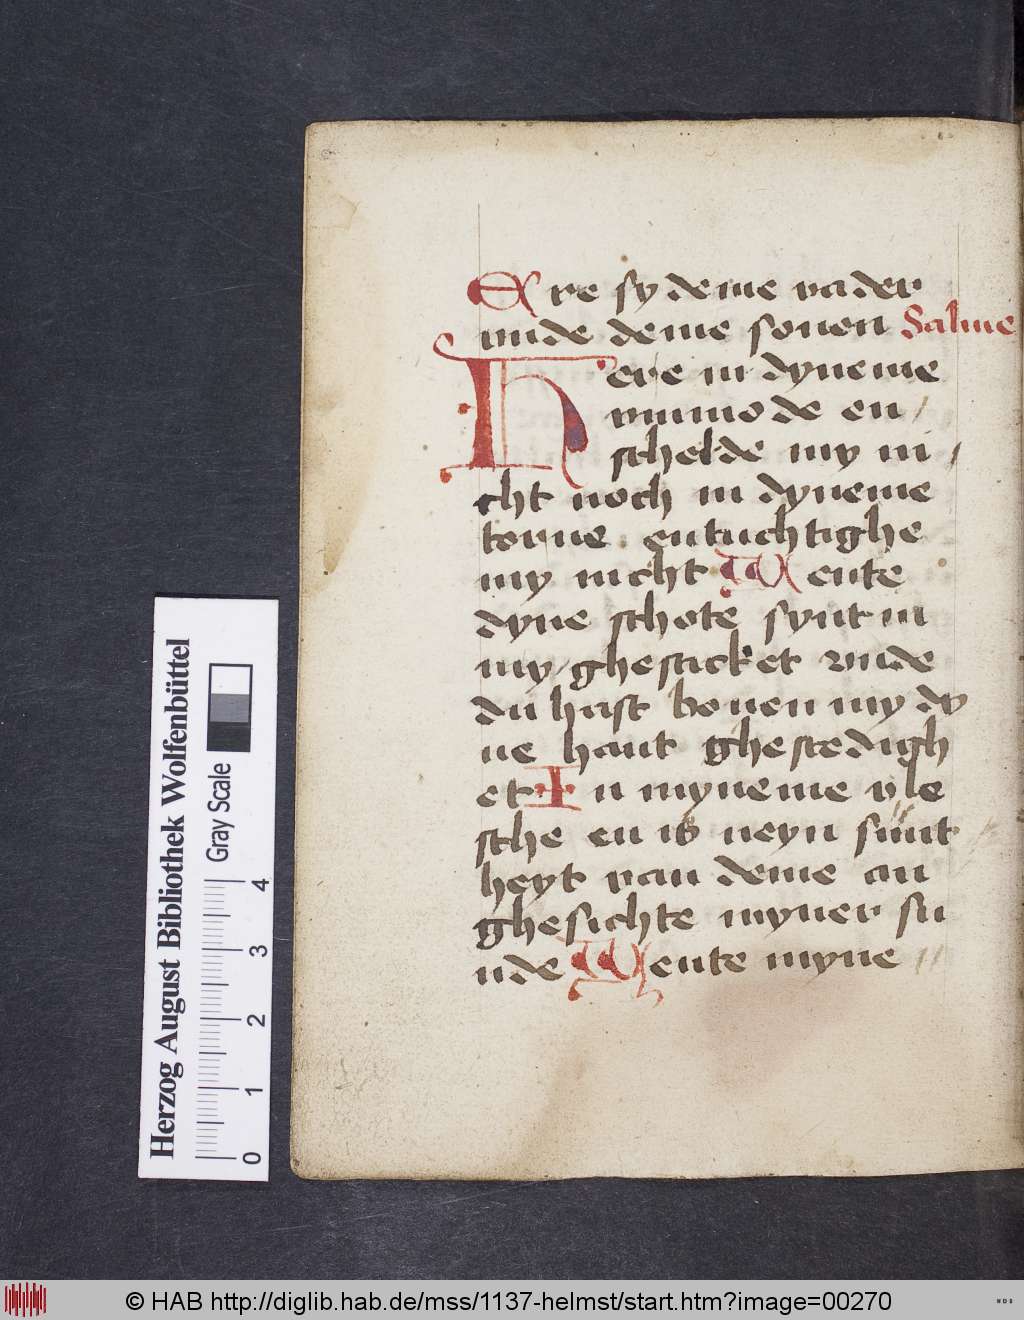 Ere sy deme vader
unde deme sonen Salme
Here in dyneme
vnmode en
schelde my ni
cht noch in dyneme
torne entuchtighe
my nicht Wente
dyne schote synt in
my ghesticket vnde
du hast bouen my dy
ne hant ghestedigh
et In myneme vle
sche en is neyn sunt
heyt van deme an
ghesichte myner su
nde Wente myne
Herzog August Bibliothek Wolfenbüttel
Gray Scale
0 1 2 3 4
© HAB http://diglib.hab.de/mss/1137-helmst/start.htm?image=00270